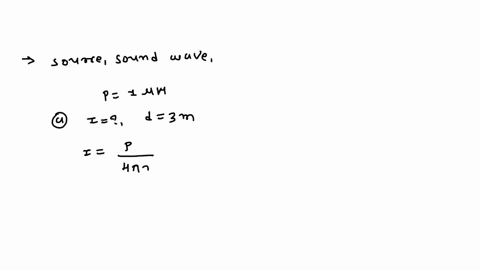 → source, sound wave,
P = 1 μW
ⓐ I = ?, d = 3 m
I = P / 4πr